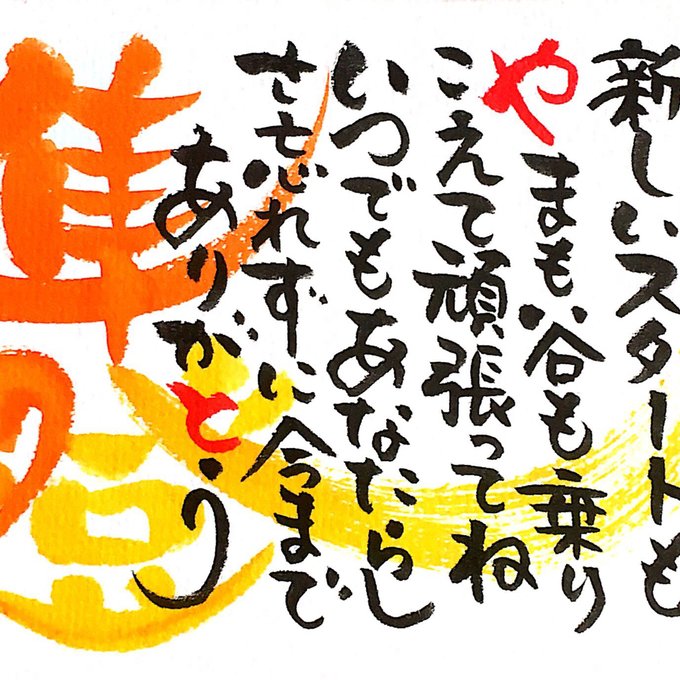 新しいスタートも
やまも谷も乗り
こえて頑張ってね
いつでもあなたらし
さ忘れずに今まで
ありがとう